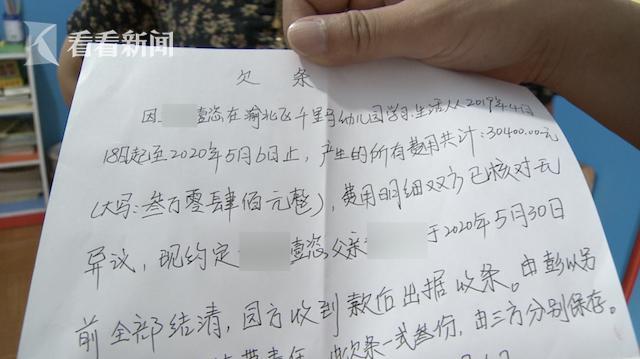 看看新闻
欠条
因 懿恣在渝北区千里马幼儿园学习生活从2019年4月
18日起至2020年5月6日止,产生的所有费用共计:30400.00元
(大写:叁万零肆佰元整),费用明细双方已核对无
异议,现约定 懿恣父亲 于2020年5月30日
前全部结清,园方收到款后出据收条。由彭以另
带责任,此欠条一式叁份,由三方分别保存。